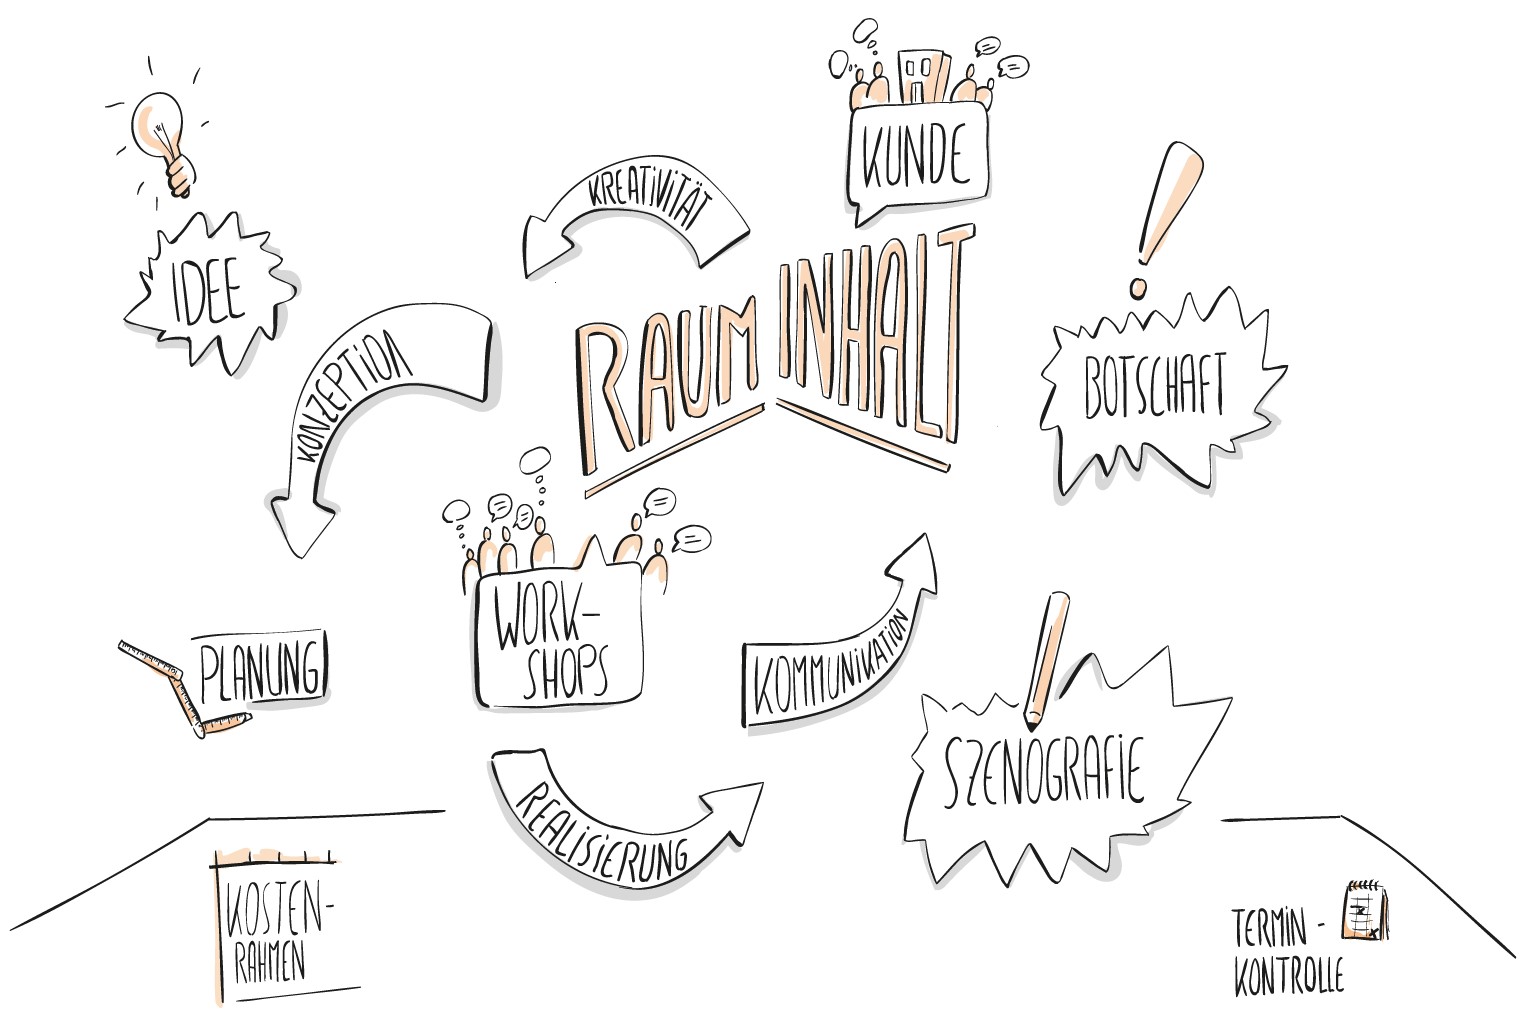 KUNDE
KREATIVITÄT
IDEE
RAUM INHALT
KONZEPTION
BOTSCHAFT
WORK-
SHOPS
PLANUNG
KOMMUNIKATION
SZENOGRAFIE
REALISIERUNG
KOSTEN-
RAHMEN
TERMIN-
KONTROLLE